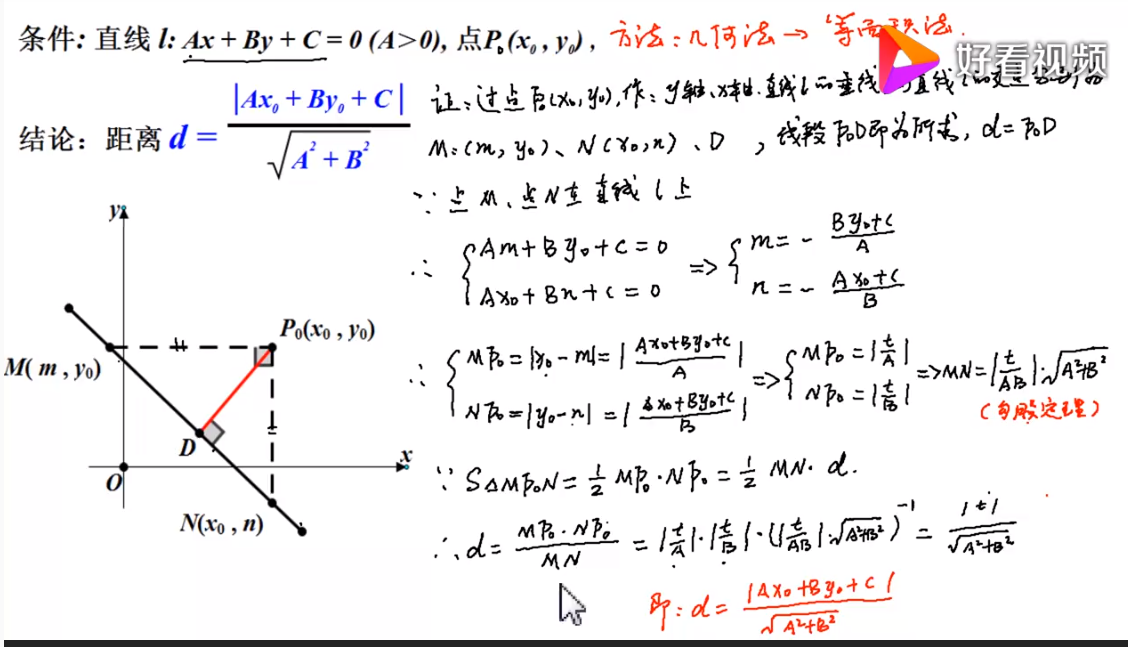 条件: 直线 l: Ax + By + C = 0 (A>0), 点P₀(x₀, y₀), 方法: 几何法 → 等面积法.
好看视频
结论: 距离 d = |Ax₀ + By₀ + C| / √(A² + B²)
证: 过点P₀(x₀, y₀), 作: y轴、x轴、直线l的垂线
M: (m, y₀)、N(x₀, n)、D, 线段P₀D即为所求, d = P₀D
∵ 点M、点N在直线l上
∴ { Am + By₀ + C = 0
Ax₀ + Bn + C = 0
=> { m = - (By₀+C)/A
n = - (Ax₀+C)/B
∴ { MP₀ = |x₀ - m| = |(Ax₀+By₀+C)/A|
NP₀ = |y₀ - n| = |(Ax₀+By₀+C)/B|
=> { MP₀ = |t/A|
NP₀ = |t/B|
=> MN = |t/AB|·√(A²+B²)
(勾股定理)
∵ S△MP₀N = 1/2 MP₀·NP₀ = 1/2 MN·d.
∴ d = (MP₀·NP₀)/MN = |t/A|·|t/B|·(|t/AB|·√(A²+B²))⁻¹ = |t|/√(A²+B²)
即: d = |Ax₀+By₀+C|/√(A²+B²)
y
P₀(x₀, y₀)
M(m, y₀)
D
x
O
N(x₀, n)